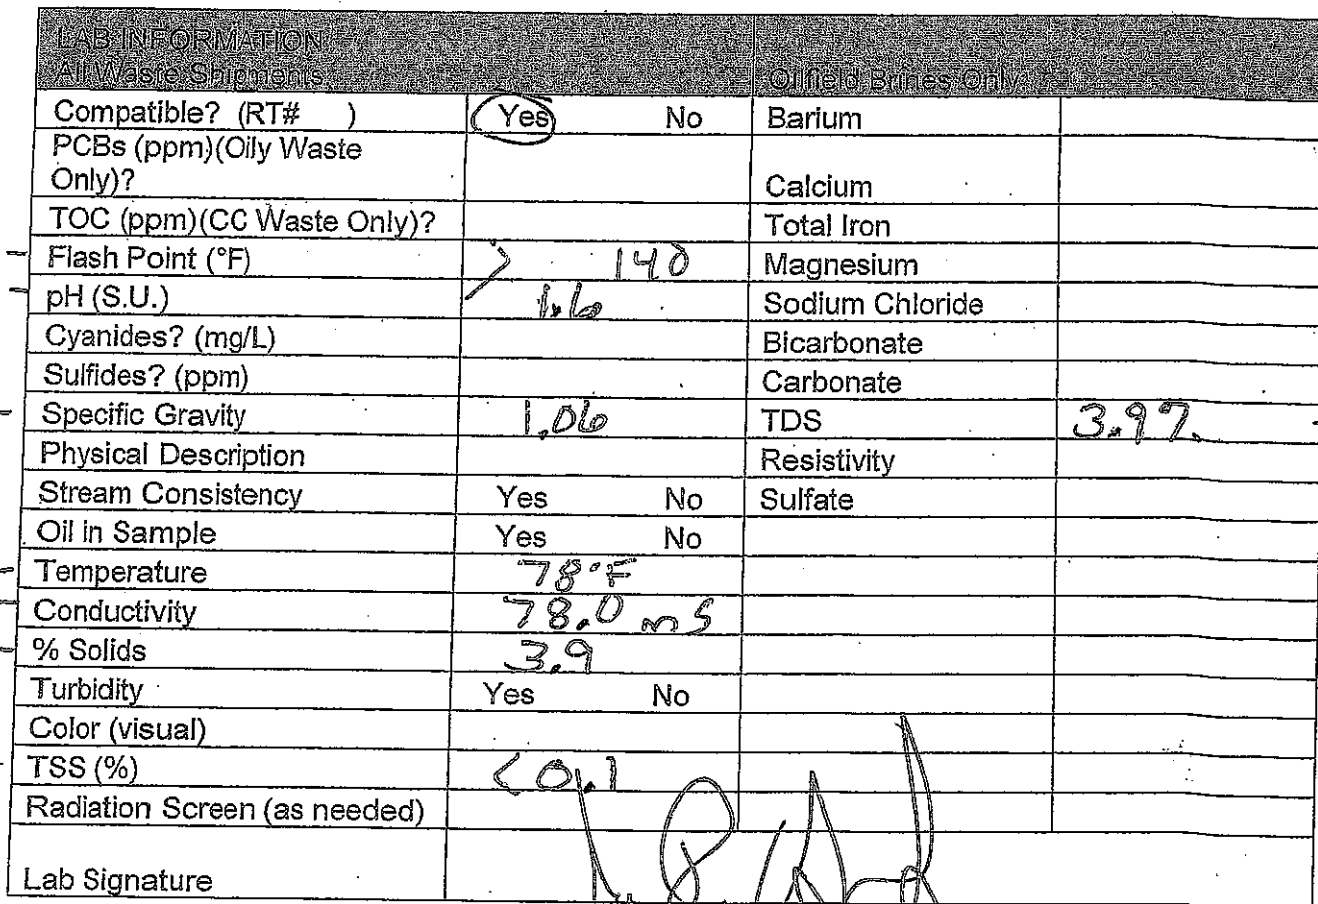 LAB INFORMATION
All Waste Shipments Oilfield Brines Only
Compatible? (RT# ) Yes No Barium
PCBs (ppm)(Oily Waste
Only)? Calcium
TOC (ppm)(CC Waste Only)? Total Iron
Flash Point (°F) > 140 Magnesium
pH (S.U.) 1.6 Sodium Chloride
Cyanides? (mg/L) Bicarbonate
Sulfides? (ppm) Carbonate
Specific Gravity 1.06 TDS 3.97.
Physical Description Resistivity
Stream Consistency Yes No Sulfate
Oil in Sample Yes No
Temperature 78°F
Conductivity 78.0 mS
% Solids 3.9
Turbidity Yes No
Color (visual)
TSS (%) <0.1
Radiation Screen (as needed)
Lab Signature